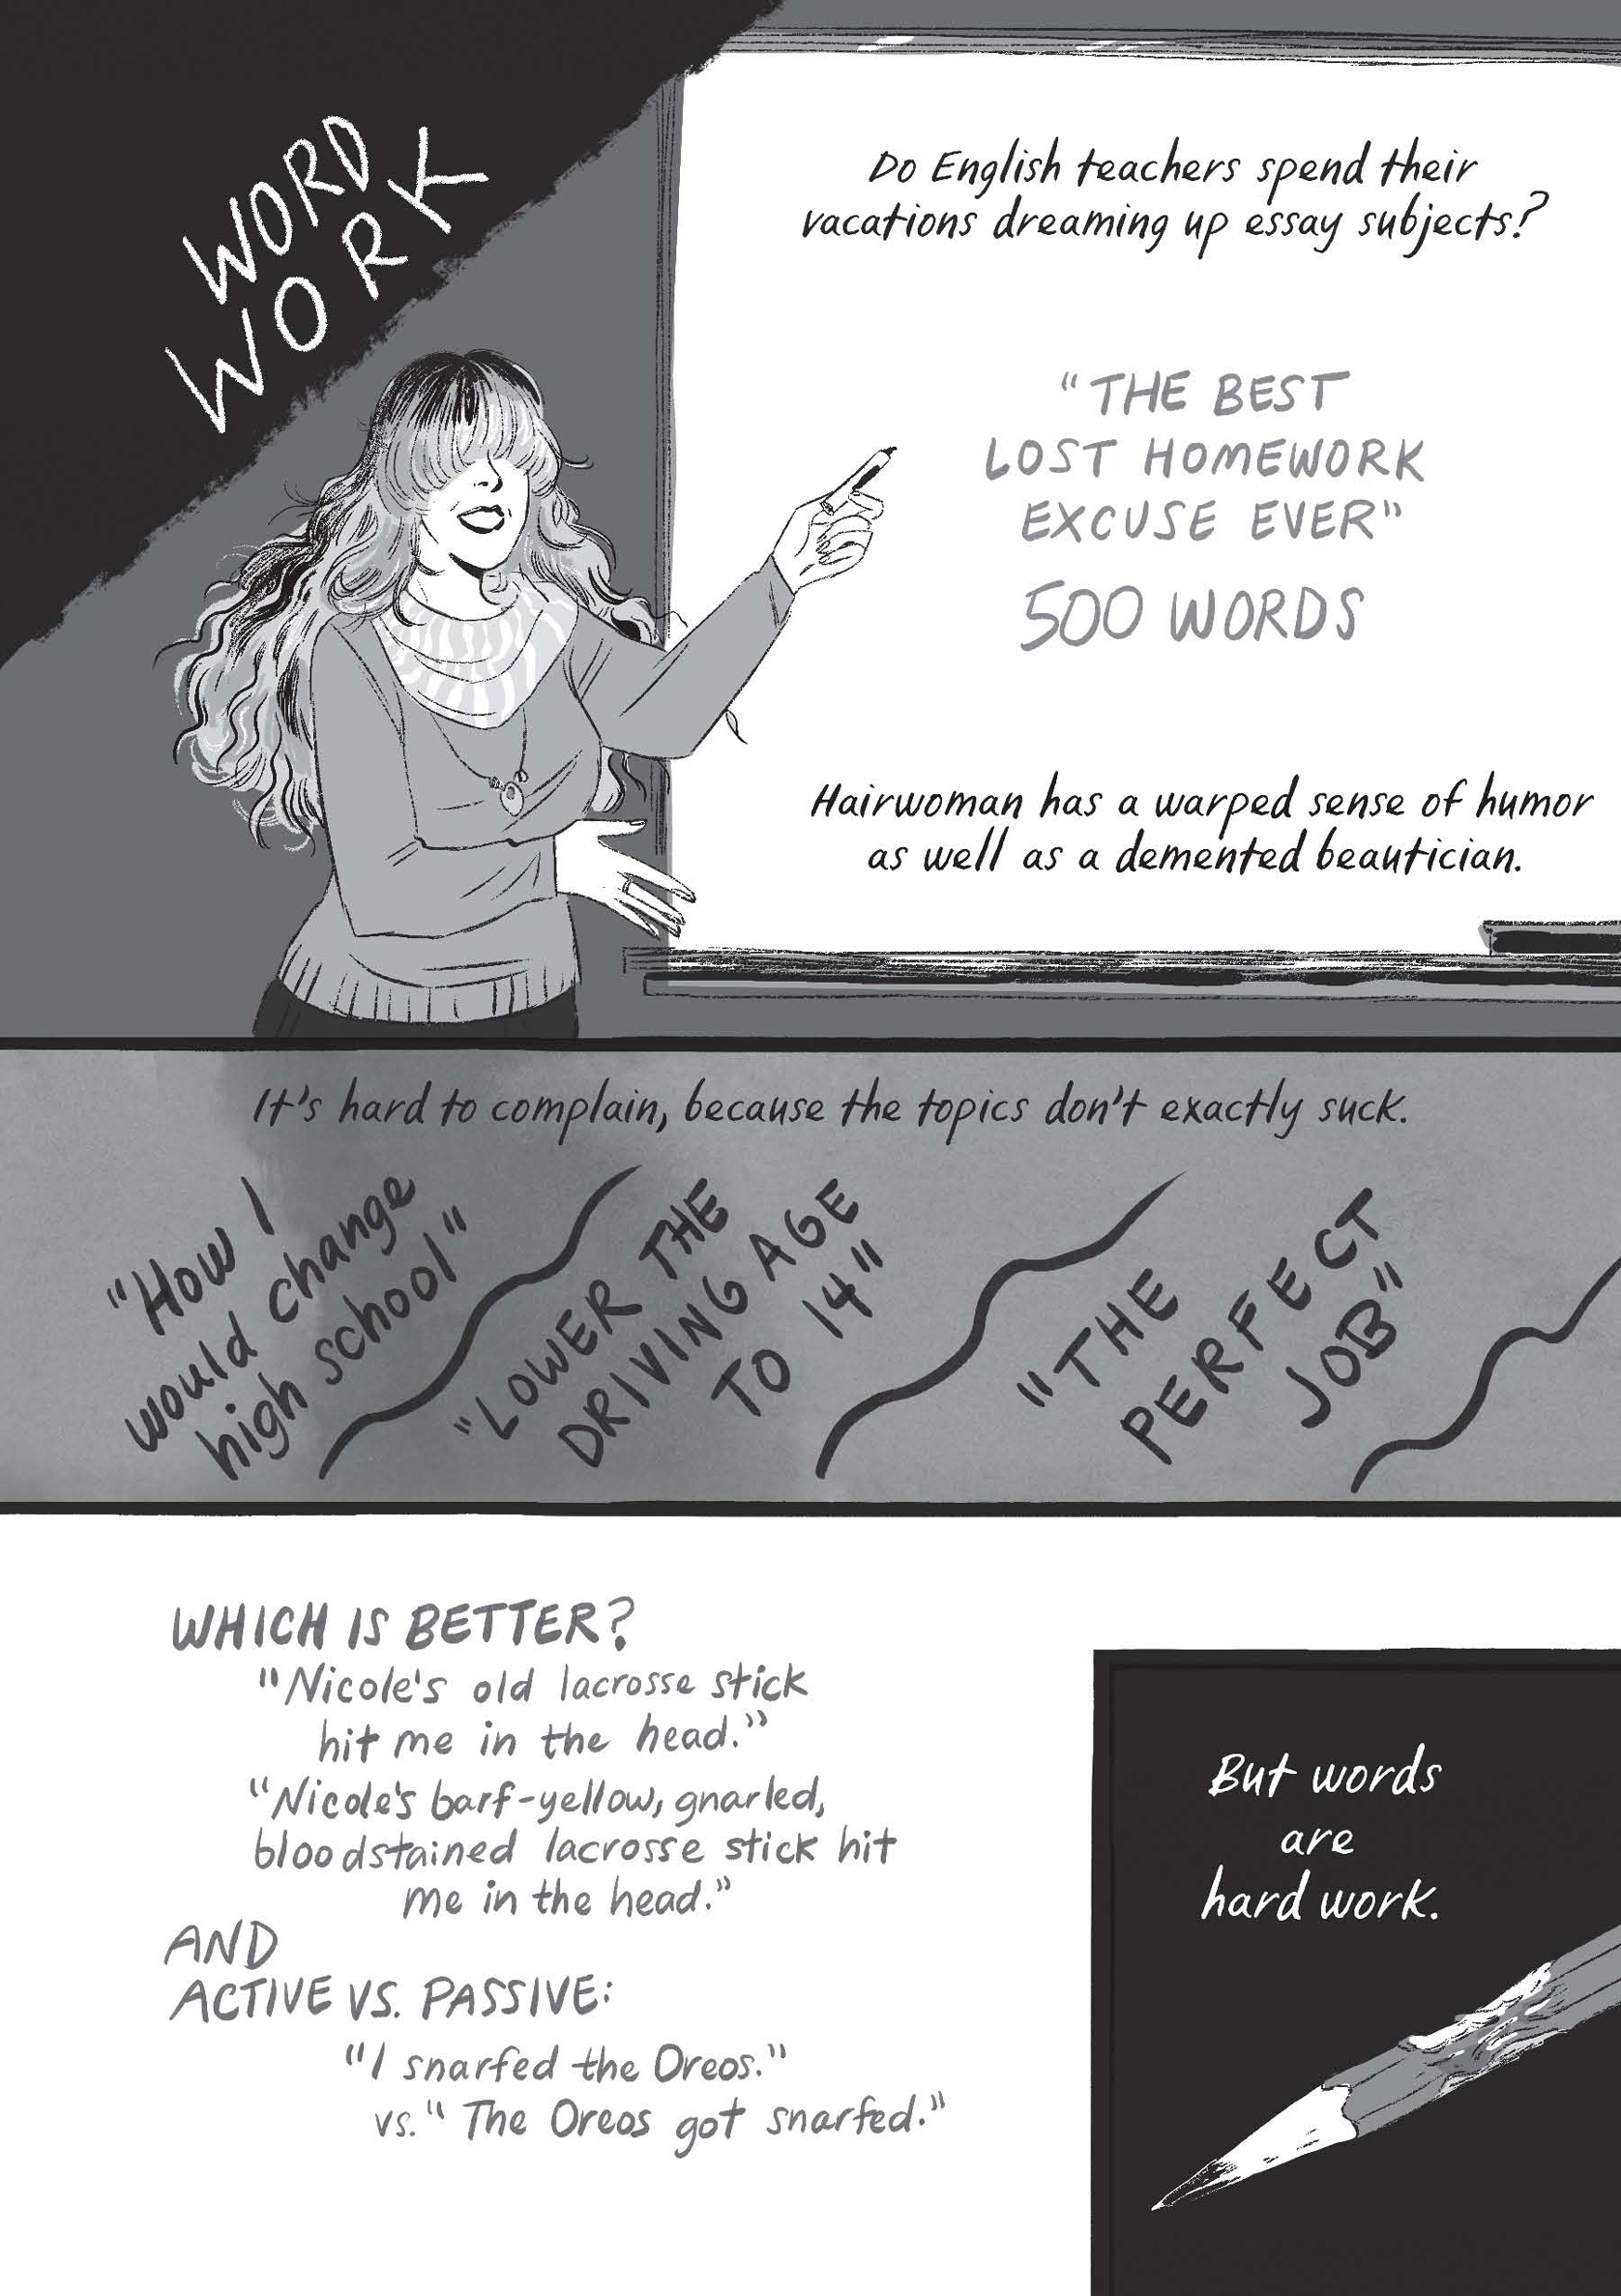 WORD
WORK
Do English teachers spend their
vacations dreaming up essay subjects?
"THE BEST
LOST HOMEWORK
EXCUSE EVER"
500 WORDS
Hairwoman has a warped sense of humor
as well as a demented beautician.
It's hard to complain, because the topics don't exactly suck.
"How I
would change
high school"
"LOWER THE
DRIVING AGE
TO 14"
"THE
PERFECT
JOB"
WHICH IS BETTER?
"Nicole's old lacrosse stick
hit me in the head."
"Nicole's barf-yellow, gnarled,
bloodstained lacrosse stick hit
me in the head."
AND
ACTIVE VS. PASSIVE:
"I snarfed the Oreos."
vs. "The Oreos got snarfed."
But words
are
hard work.